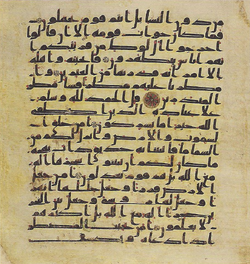 من دون النسا بل انتم قوم تجهلون
فما كان جواب قومه الا ان قالوا
اخرجوا ال لوط من قريتكم ا
نهم اناس يتطهرون فانجينه واهله
الا امراته قدرنها من الغبرين وا
مطرنا عليهم مطرا فسا مطر
المنذرين قل الحمد لله وسلم
على عباده الذين اصطفى
الله خير اما يشركون امن خلق ا
لسموت والارض وانزل لكم من
السما ما فانبتنا به حدائق ذا
ت بهجة ما كان لكم ان تنبتوا شجرها ا
له مع الله بل هم قوم يعدلون ا
من جعل الارض قرارا وجعل خللها
انهرا وجعل لها روسي وجعل بين ا
لبحرين حاجزا اله مع الله بل اكثرهم
لا يعلمون امن يجيب المضطر
اذا دعاه ويكشف